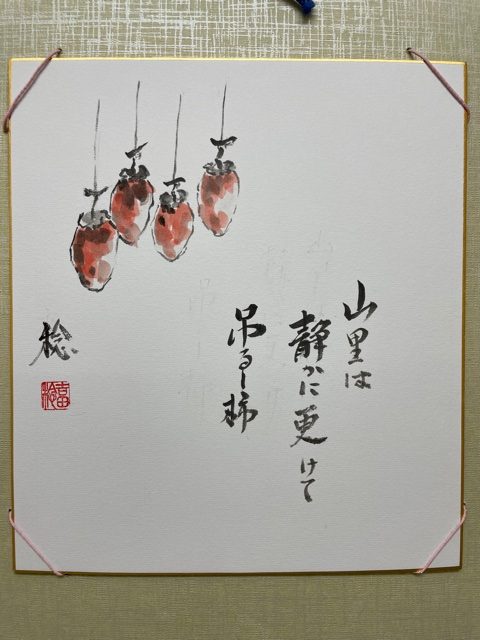 山里は
静かに更けて
吊るし柿
稔